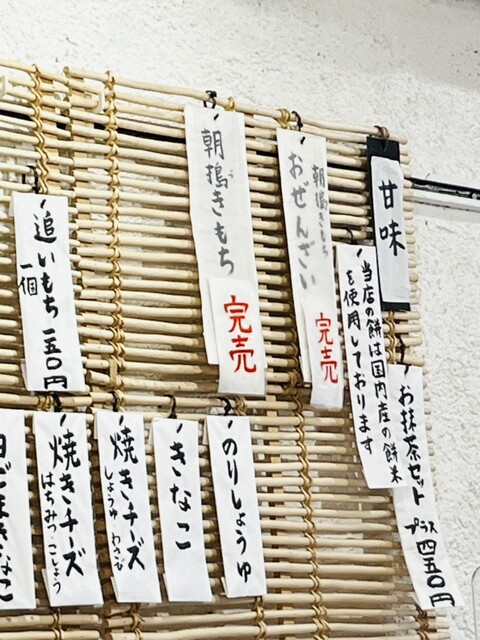 甘味
当店の餅は国内産の餅米
を使用しております
お抹茶セット
プラス 四五〇円
朝搗きもち
おぜんざい
完売
朝搗きもち
完売
追いもち 一五〇円
一個
のりしょうゆ
きなこ
焼きチーズ
しょうゆ・わさび
焼きチーズ
はちみつ・こしょう
白ごまきなこ